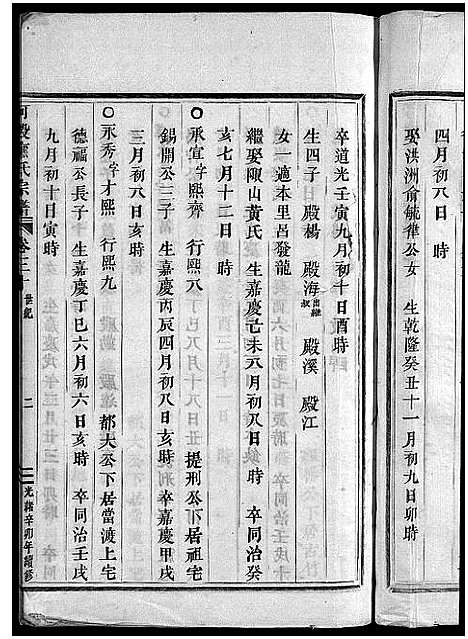 四月初八日　時
娶洪洲俞毓律公女　生乾隆癸丑十一月初九日卯時
卒道光壬寅九月初十日酉時
生四子　殿楊　殿海出繼叔　殿溪　殿江
女一適本里呂發龍
繼娶陬山黃氏　生嘉慶己未八月初八日鈌時　卒同治癸
亥七月十二日　時
〇永宜字熙齊　行熙八　提刑公下居祖宅
錫開公三子　生嘉慶丙辰四月初八日亥時　卒嘉慶甲戌
三月初八日亥時
〇永秀字才熙　行熙九　都大公下居當渡上宅
德福公長子　生嘉慶丁巳六月初六日亥時　卒同治壬戌
九月初十日寅時
氏宗譜　卷之二十　世紀　二　光緒辛卯年續修